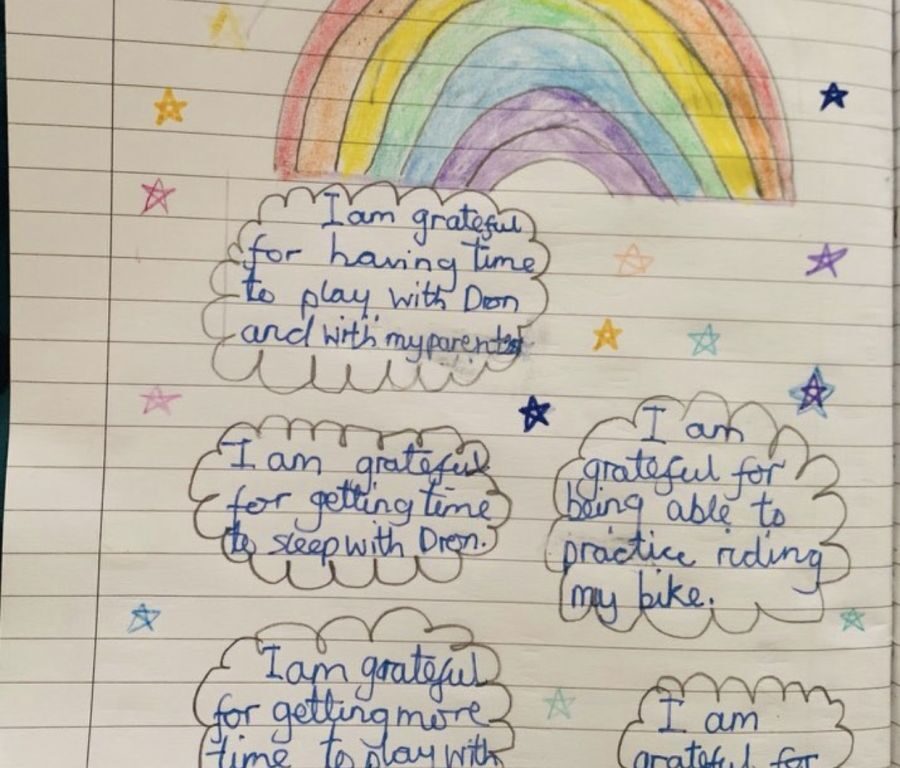 I am grateful
for having time
to play with Dron
and with my parents
I am grateful
for getting time
to sleep with Dron.
I am
grateful for
being able to
practice riding
my bike.
I am grateful
for getting more
time to play with
I am
grateful for